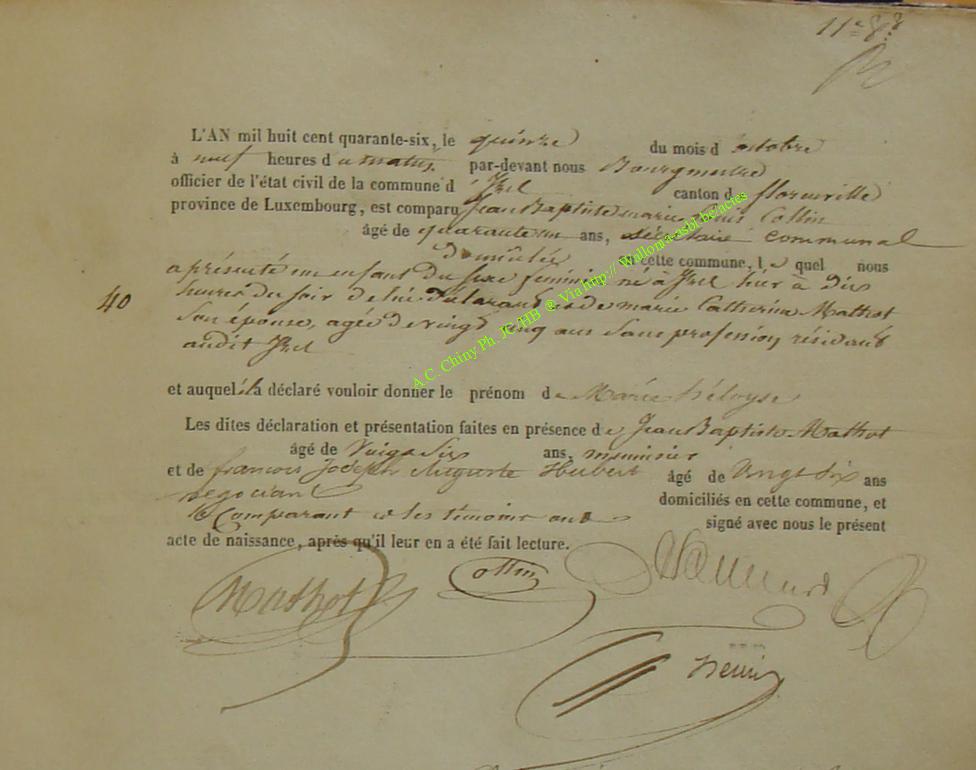 11e 8.8
L'AN mil huit cent quarante-six, le quinze du mois d'octobre
à neuf heures du matin par-devant nous Bourgmestre
officier de l'état civil de la commune d'Izel canton de florenville
province de Luxembourg, est comparu Jean Baptiste marie Louis Collin
âgé de quarante un ans, secrétaire communal
domicilié en cette commune, le quel nous
a présenté un enfant du sexe féminin né à Izel hier à dix
40
heures du soir de lui déclarant et de marie Catherine Mathot
son épouse, agée de vingt cinq ans sans profession, résidant
audit Izel
et auquel il a déclaré vouloir donner le prénom de Marie héloyse
Les dites déclaration et présentation faites en présence de Jean Baptiste Mathot
âgé de vingt six ans, menuisier
et de françois Joseph Auguste Hubert âgé de vingt six ans
négociant domiciliés en cette commune, et
le Comparant et les témoins ont signé avec nous le présent
acte de naissance, après qu'il leur en a été fait lecture.
Mathot Collin
A.C. Chiny Ph. JC.HB @ Via http:// Wallonia-asbl.be/actes